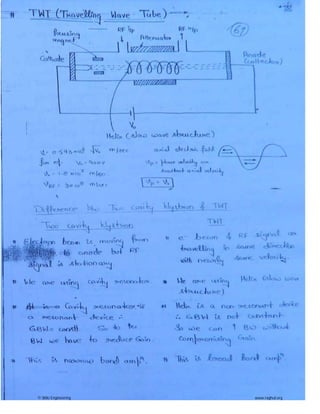 TWT (Travelling Wave Tube)
69
focusing magnet
RF i/p
Attenuator
RF o/p
Cathode
Anode (collector)
V₀
Helix (slow wave structure)
m/sec
axial electric field
for
m/sec
Vp = phase velocity
axial velocity
m/sec
Difference b/w Two cavity klystron & TWT
Two cavity klystron
TWT
Electron beam is moving from
to anode but RF
signal is stationary
e⁻ beam & RF signal are
travelling in same direction
with nearly same velocity.
We are using cavity resonator
We are using Helix (slow wave
structure)
Cavity resonator is
a resonant device ∴
GBW = const. So to ↑
BW we have to reduce Gain.
Helix is a non-resonant device
∴ GBW is not constant.
So we can ↑ BW without
compromising Gain
This is narrow band ampr.
This is broad band ampr
© Wiki Engineering
www.raghul.org